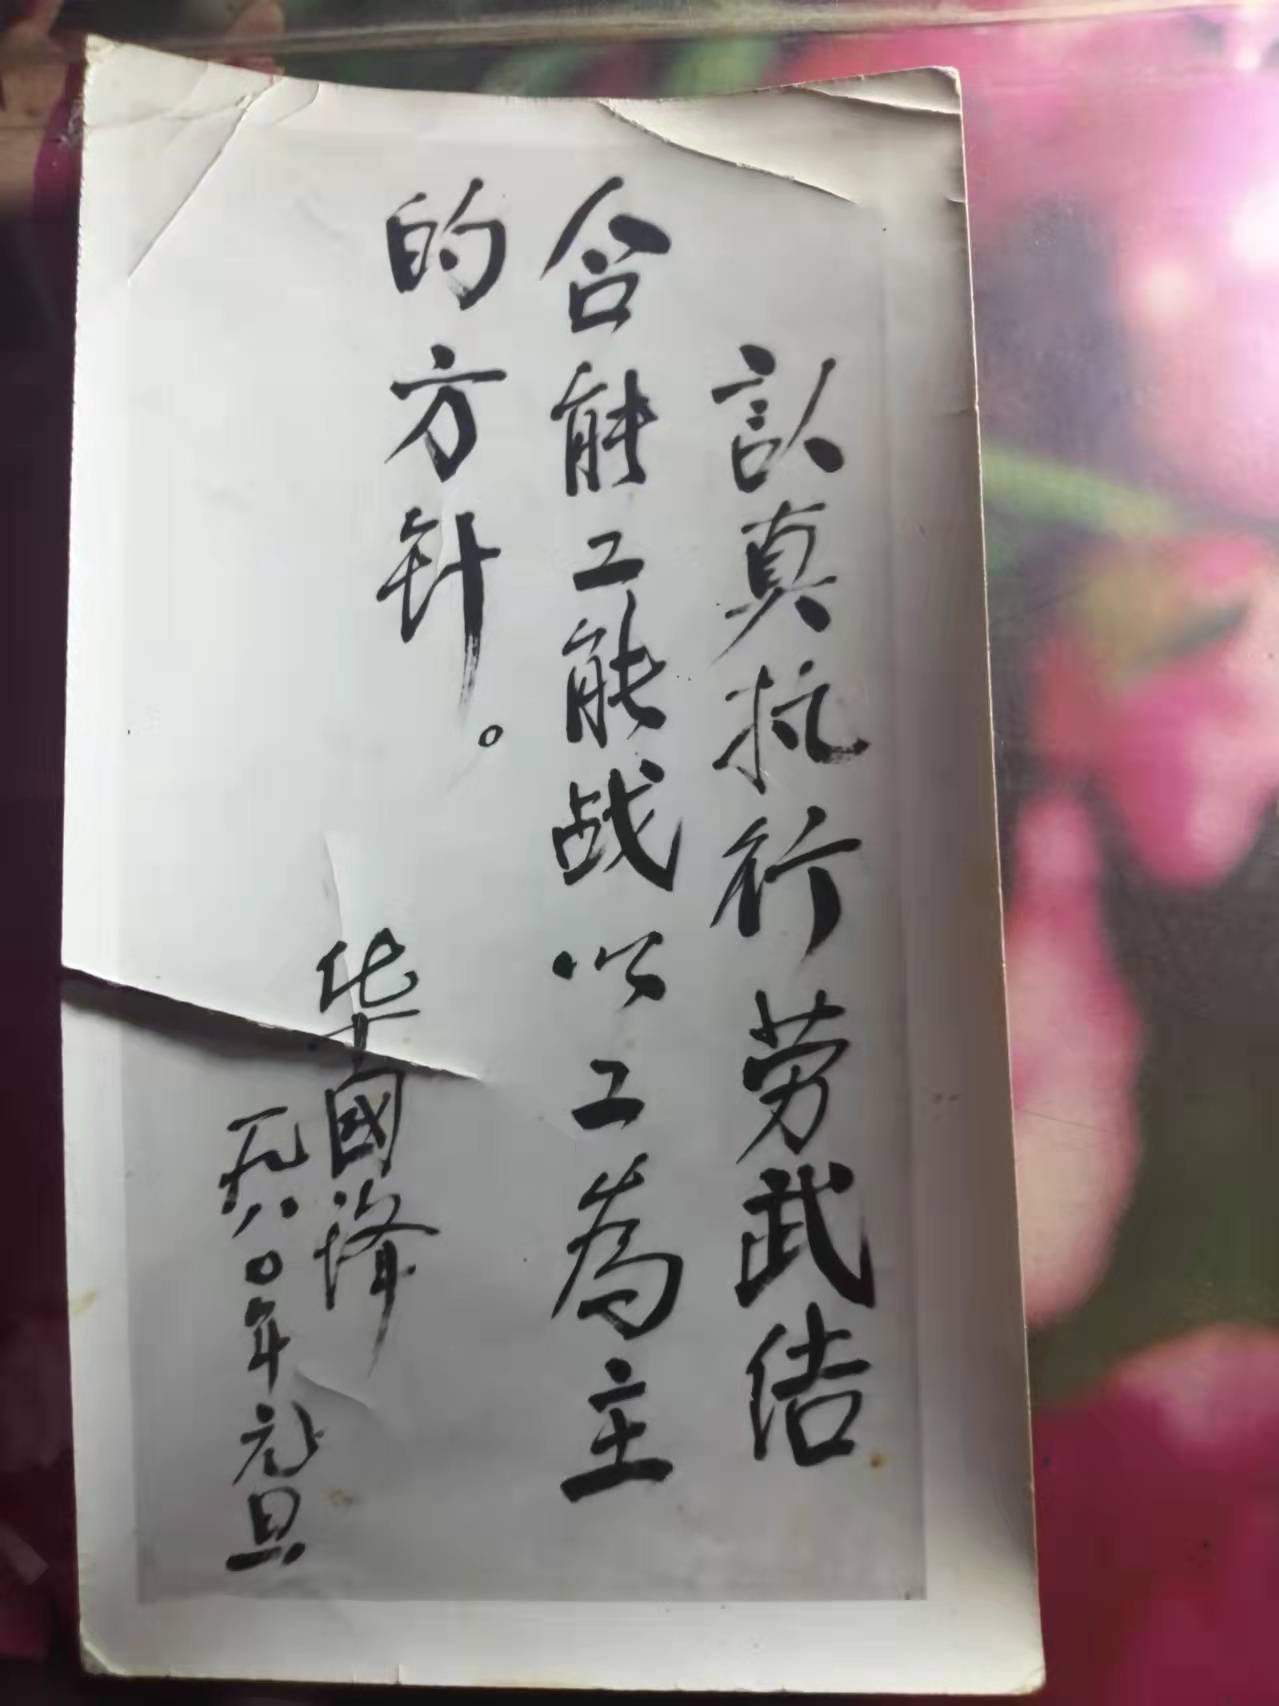 认真执行劳武结
合能工能战以工为主
的方针。
华国锋
一九八〇年元旦